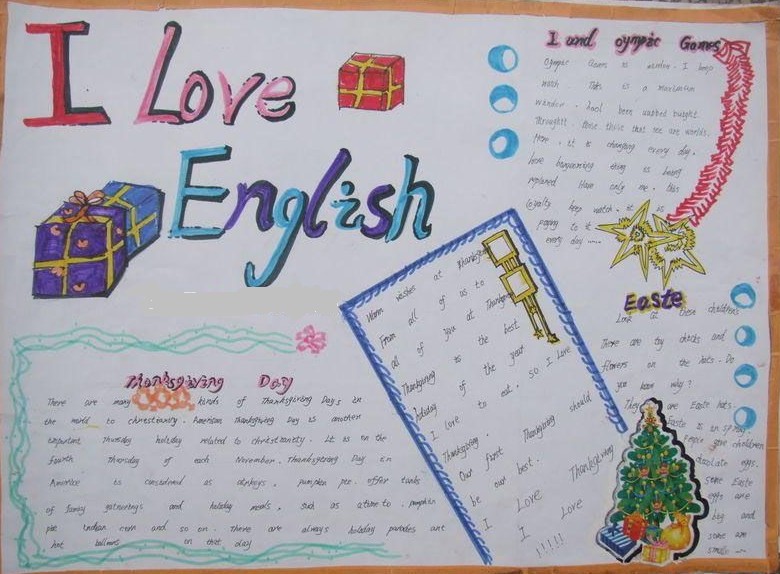 I Love
English
I and oympic Games
Olympic Games is I keep
watch is a
wonder had been
thought these that see are worlds.
Now, it is changing every day.
being
only me. this
loyalty keep watch. it is
to it
every day
Warm wishes at Thanksgiving
From all of us to
all of you at Thanksgiving
Thanksgiving is the best
holiday of the year
I love to eat. so I Love
Thanksgiving.
Our first Thanksgiving should
be our best.
I Love Thanksgiving
I Love
!!!!!
Easte
Look at these children's
There are toy chicks and
flowers on the hats. Do
you know why?
They are Easte hats.
Easte is in
people give children
chocolate eggs.
some Easte
eggs are
big and
some are
small
Thanksgiving Day
There are many kinds of Thanksgiving Days in
the world to christianity. American Thanksgiving Day is another
important Thursday holiday related to christianity. It is on the
fourth Thursday of each November. Thanksgiving Day in
America is considered as pumpkin pie. offer
of family gatherings and holiday meals, such as a time to. pumpkin
pie Indian corn and so on. There are always holiday parades and
hot on that day